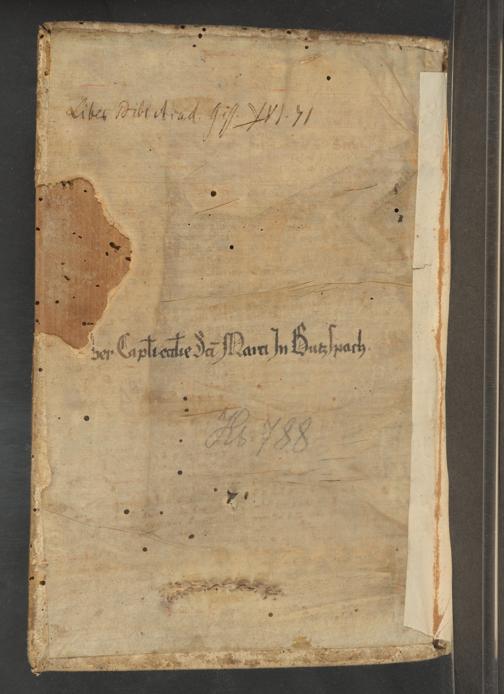 Liber Bibl. Acad. Giss. XVI. 71
ber Capli ecclie Sci Marci In Butzspach
Hs 788